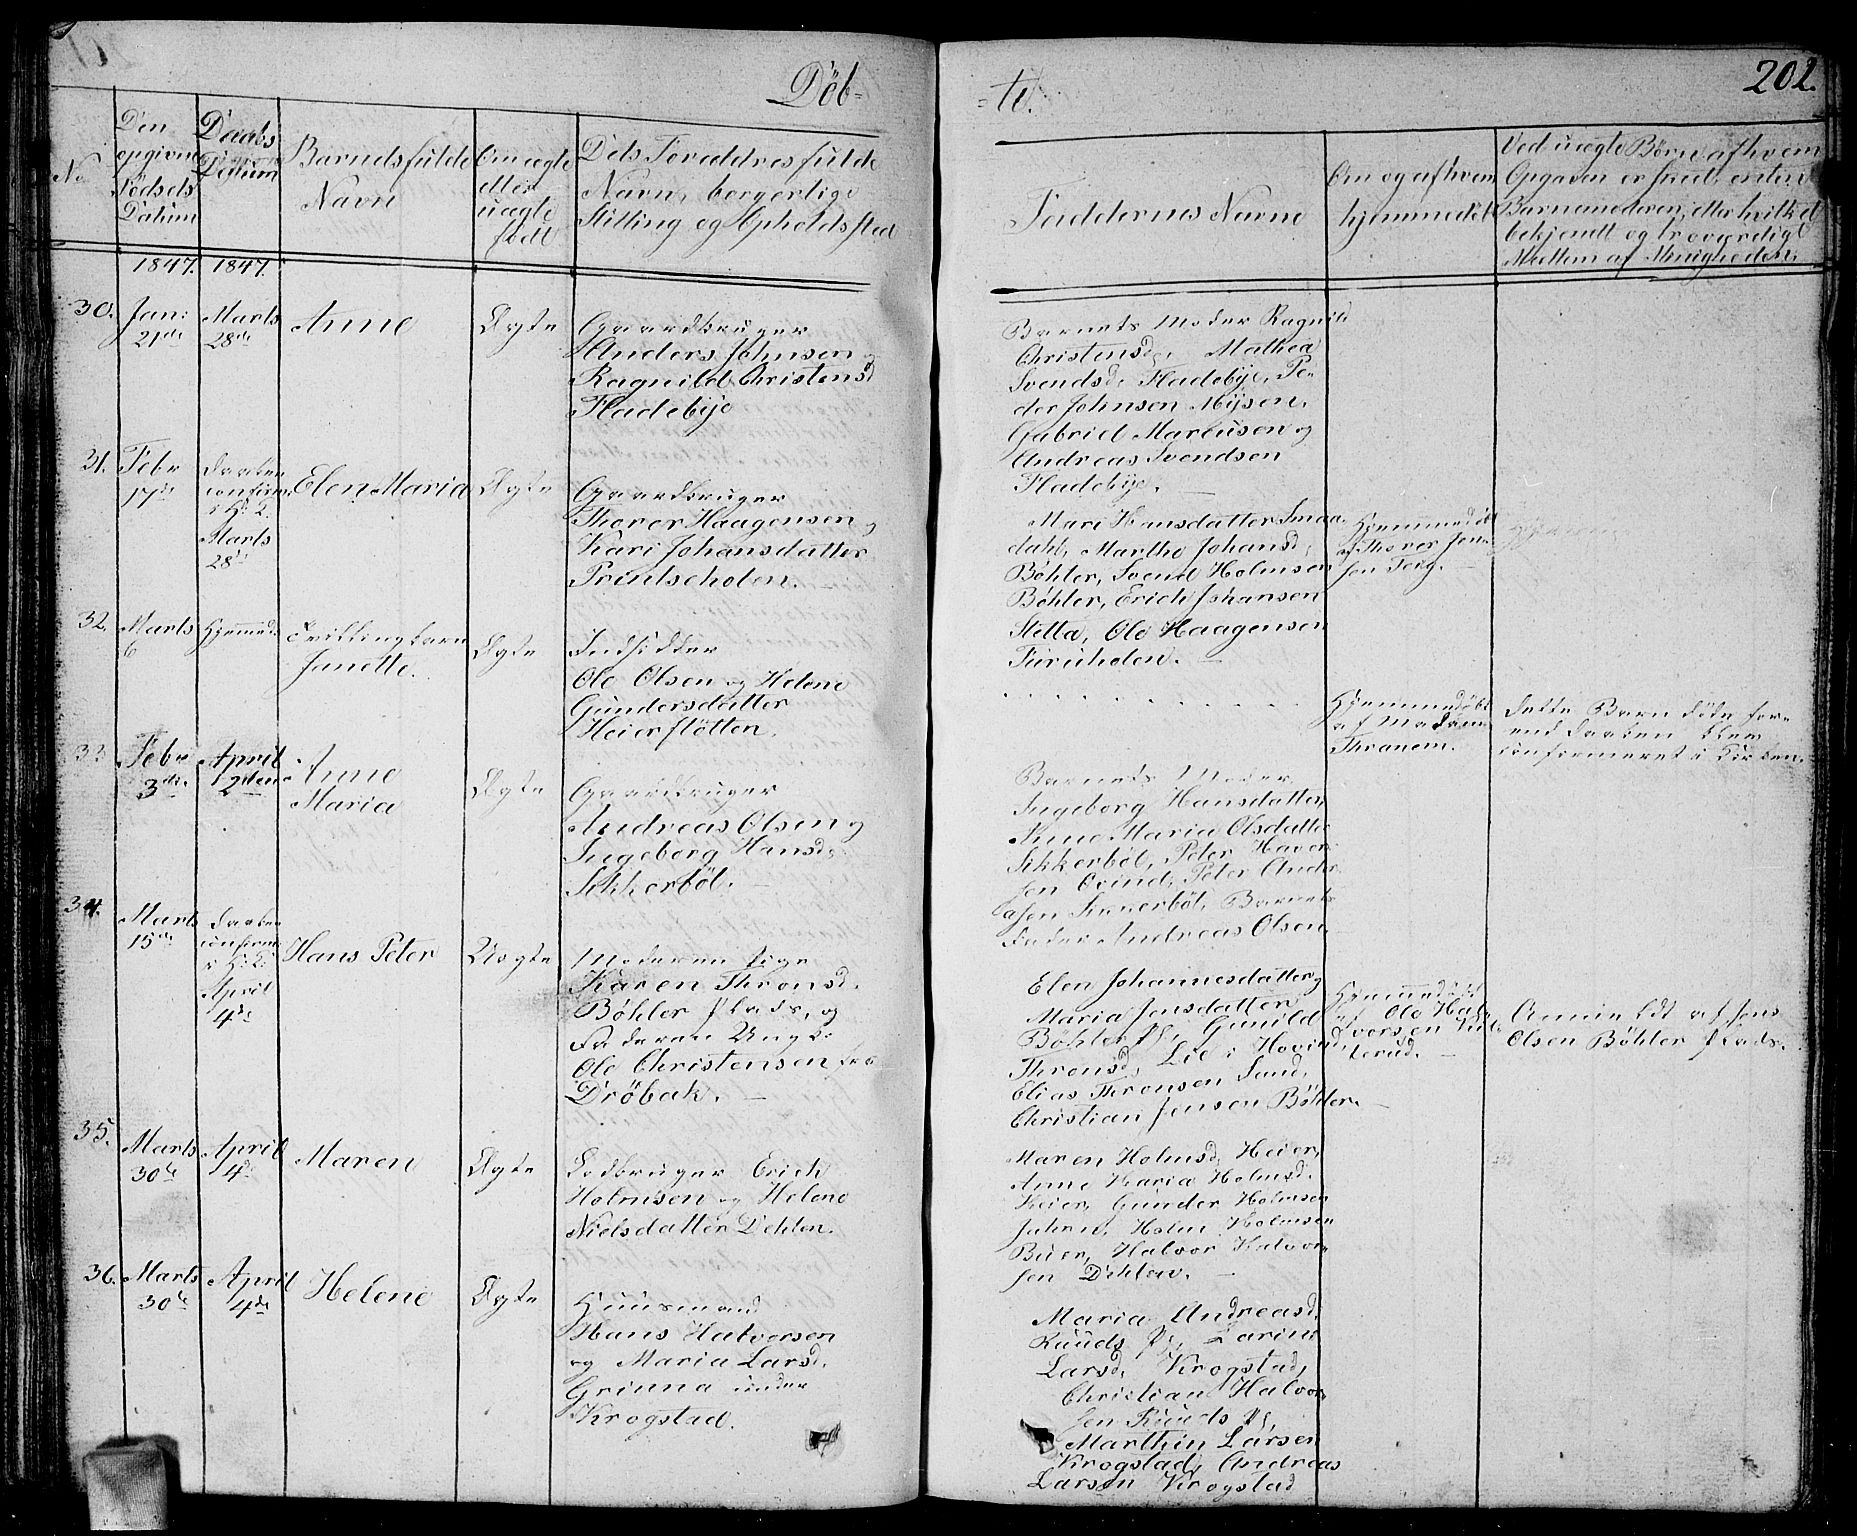 Døb-
No
Den
opgivne
Fødsels
Datum
Daabs
Datum
Barnets fulde
Navn
Om ægte
eller
uægte
født
Dets Forældres fulde
Navn, borgerlige
Stilling og Opholdssted
1847. 1847.
30. Jan: 21de Marts 28de Anne Ægte
Gaardbruger
Anders Johnsen og
Ragnild Christensd
Fladebye
31. Febr 17de Daaben confirm: i H: K: Marts 28de Elen Maria Ægte
Gaardbruger
Thorer Haagensen og
Kari Johansdatter
Printseholen.
32. Marts 6 Hjemmed: Tvillingbarn Janette. Ægte
Indsidder
Ole Olsen og Helene
Gundersdatter
Heierfløtten.
33 Febr 3die April 2den Anne Maria Ægte
Gaardbruger
Andreas Olsen og
Ingeborg Hansd,
Sikkerbøl.
34. Marts 15de Daaben confirm: i H: K: April 4de Hans Peter Uægte
Moderen Pige
Karen Thronsd.
Bøhler Plads, og
Faderen Ungk:
Ole Christensen fra
Drøbak.
35. Marts 30de April 4de Maren Ægte
Jordbruger Erich
Holmsen og Helene
Nielsdatter Dehlen.
36. Marts 30de April 4de Helene Ægte
Huusmand
Hans Halvorsen
og Maria Larsd,
Grinna under
Krogstad.
-te.
202.
Faddernes Navne
Om og af hvem
hjemmedøbt
Ved uægte Børn af hvem
Opgaven er skeet, enten
Barnemoderen, eller hvilket
bekjendt og troværdigt
Mellem af Menigheden.
Barnets Moder Ragnild
Christensd, Mathea
Svendsd, Fladebye, Pe-
der Johnsen Mysen,
Gabriel Mareusen og
Andreas Svendsen
Fladebye.
Mari Hansdatter Smaa-
dahl, Marthe Johansd,
Bøhler, Svend Holmsen
Bøhler, Erich Johansen
Stetta, Ole Haagensen
Furuholen.
Hjemmedøbt
af Thorer Jon-
sen Terg.
Hjemmedøbt
af Madame
Thranem.
Dette Barn døde for-
end Daaben blev
confirmeret i Kirken.
Barnets Moder
Ingeborg Hansdatter,
Anne Maria Olsdatter
Sikkerbøl, Peter Haver-
sen Ovind, Peter Andre-
asen Sikkerbøl, Barnets
Fader Andreas Olsen
Elen Johannesdatter og
Maria Jensdatter
Bøhler Pl, Gunild
Thronsd, Lie i Hovind
Elias Thronsen Sand,
Christian Jensen Bøhler.
Hjemmedøbt
af Ole Hal-
vorsen
Anmeldt af Jens
Olsen Bøhler Plads.
Maren Holmsd, Heier,
Anne Maria Holmsd.
Heier, Gunder Holmsen
Holm Holmsen
Buer, Halvor Halvor-
sen Dehlen.
Maria Andreasd,
Ruuds Pl, Karine
Larsd, Krogstad,
Christian Halvor-
sen Ruuds Pl,
Marthin Larsen
Krogstad, Andreas
Larsen Krogstad